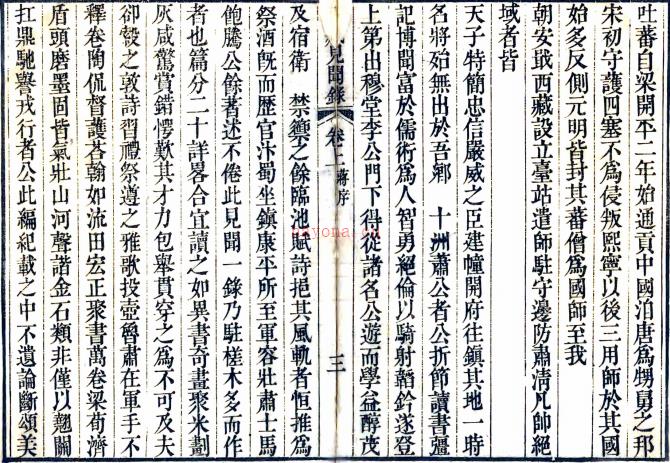 吐蕃自梁開平二年始通貢中國洎唐爲甥舅之邦
宋初守護四塞不爲侵叛熙寧以後三用師於其國
始多反側元明皆封其蕃僧爲國師至我
朝安戢西藏設立臺站遣師駐守邊防肅清凡師絕
域者皆
天子特簡忠信嚴威之臣建幢開府往鎮其地一時
名將殆無出於吾鄕　十洲蕭公者公折節讀書彊
記博聞富於儒術爲人智勇絕倫以騎射韜鈐遂登
上第出穆堂李公門下得從諸名公遊而學益醇茂
見聞錄　卷二 蔣序　三
及宿衛　禁籞之餘臨池賦詩挹其風軌者恒推爲
祭酒旣而歷官汴蜀坐鎮康平所至軍容壯肅士馬
飽騰公餘著述不倦此見聞一錄乃駐槎木多而作
者也篇分二十詳畧合宜讀之如異書奇畫聚米劃
灰咸驚賞錯愕歎其才力包舉貫穿之爲不可及夫
卻縠之敦詩習禮祭遵之雅歌投壺魯肅在軍手不
釋卷陶侃督護荅翰如流田宏正聚書萬卷梁荀濟
盾頭磨墨固皆氣壯山河聲諧金石類非僅以翹關
扛鼎馳譽戎行者公此編紀載之中不遺論斷頌美